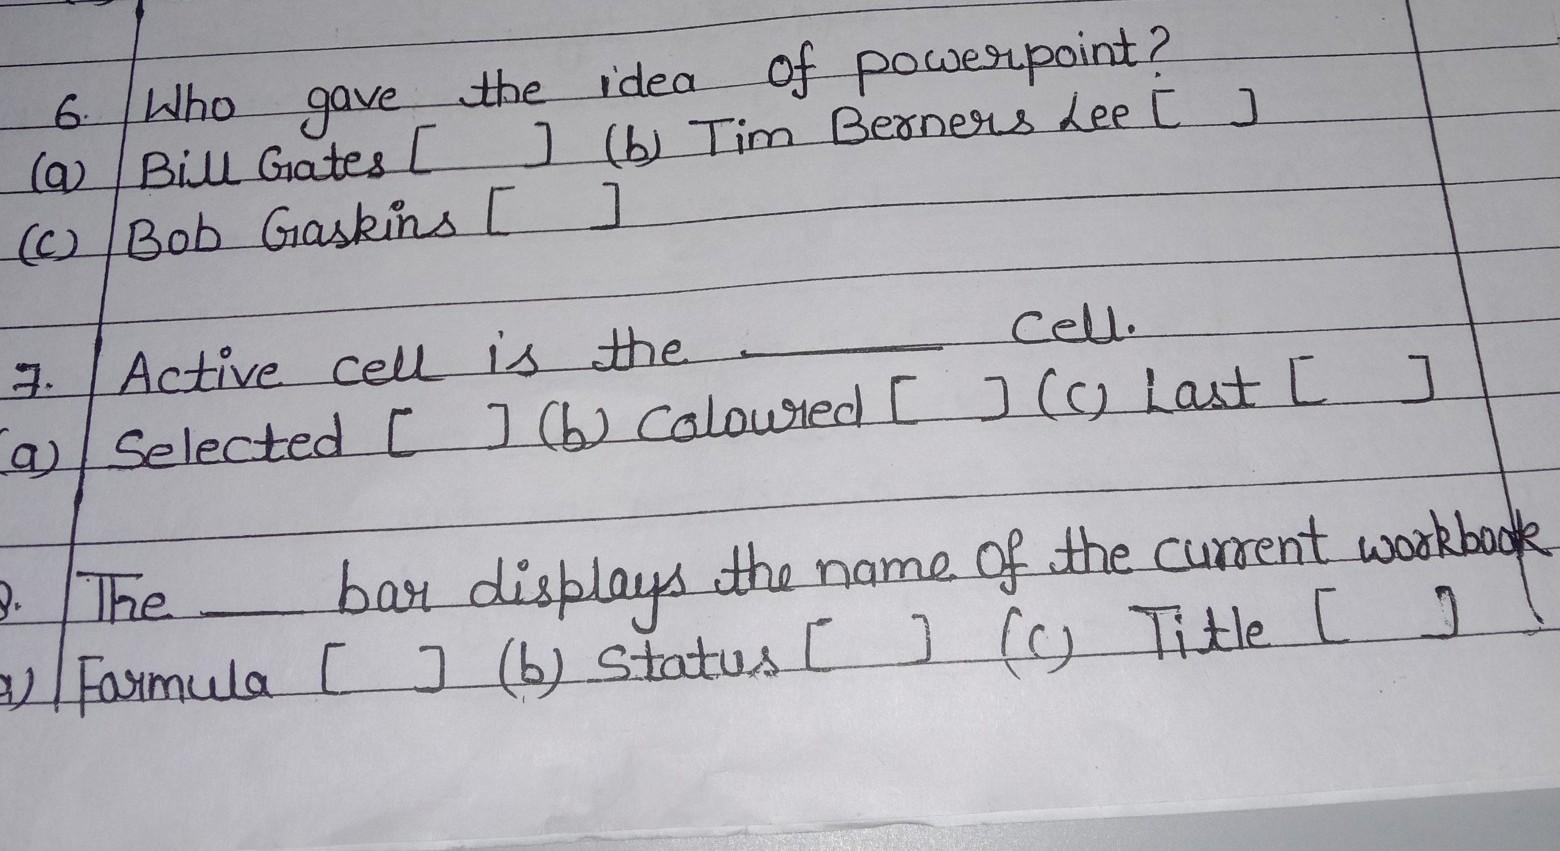 6. Who gave the idea of powerpoint?
(a) Bill Gates [ ] (b) Tim Berners Lee [ ]
(c) Bob Gaskins [ ]
7. Active cell is the ______ cell.
(a) Selected [ ] (b) Coloured [ ] (c) Last [ ]
8. The ____ bar displays the name of the current workbook
a) Formula [ ] (b) Status [ ] (c) Title [ ]